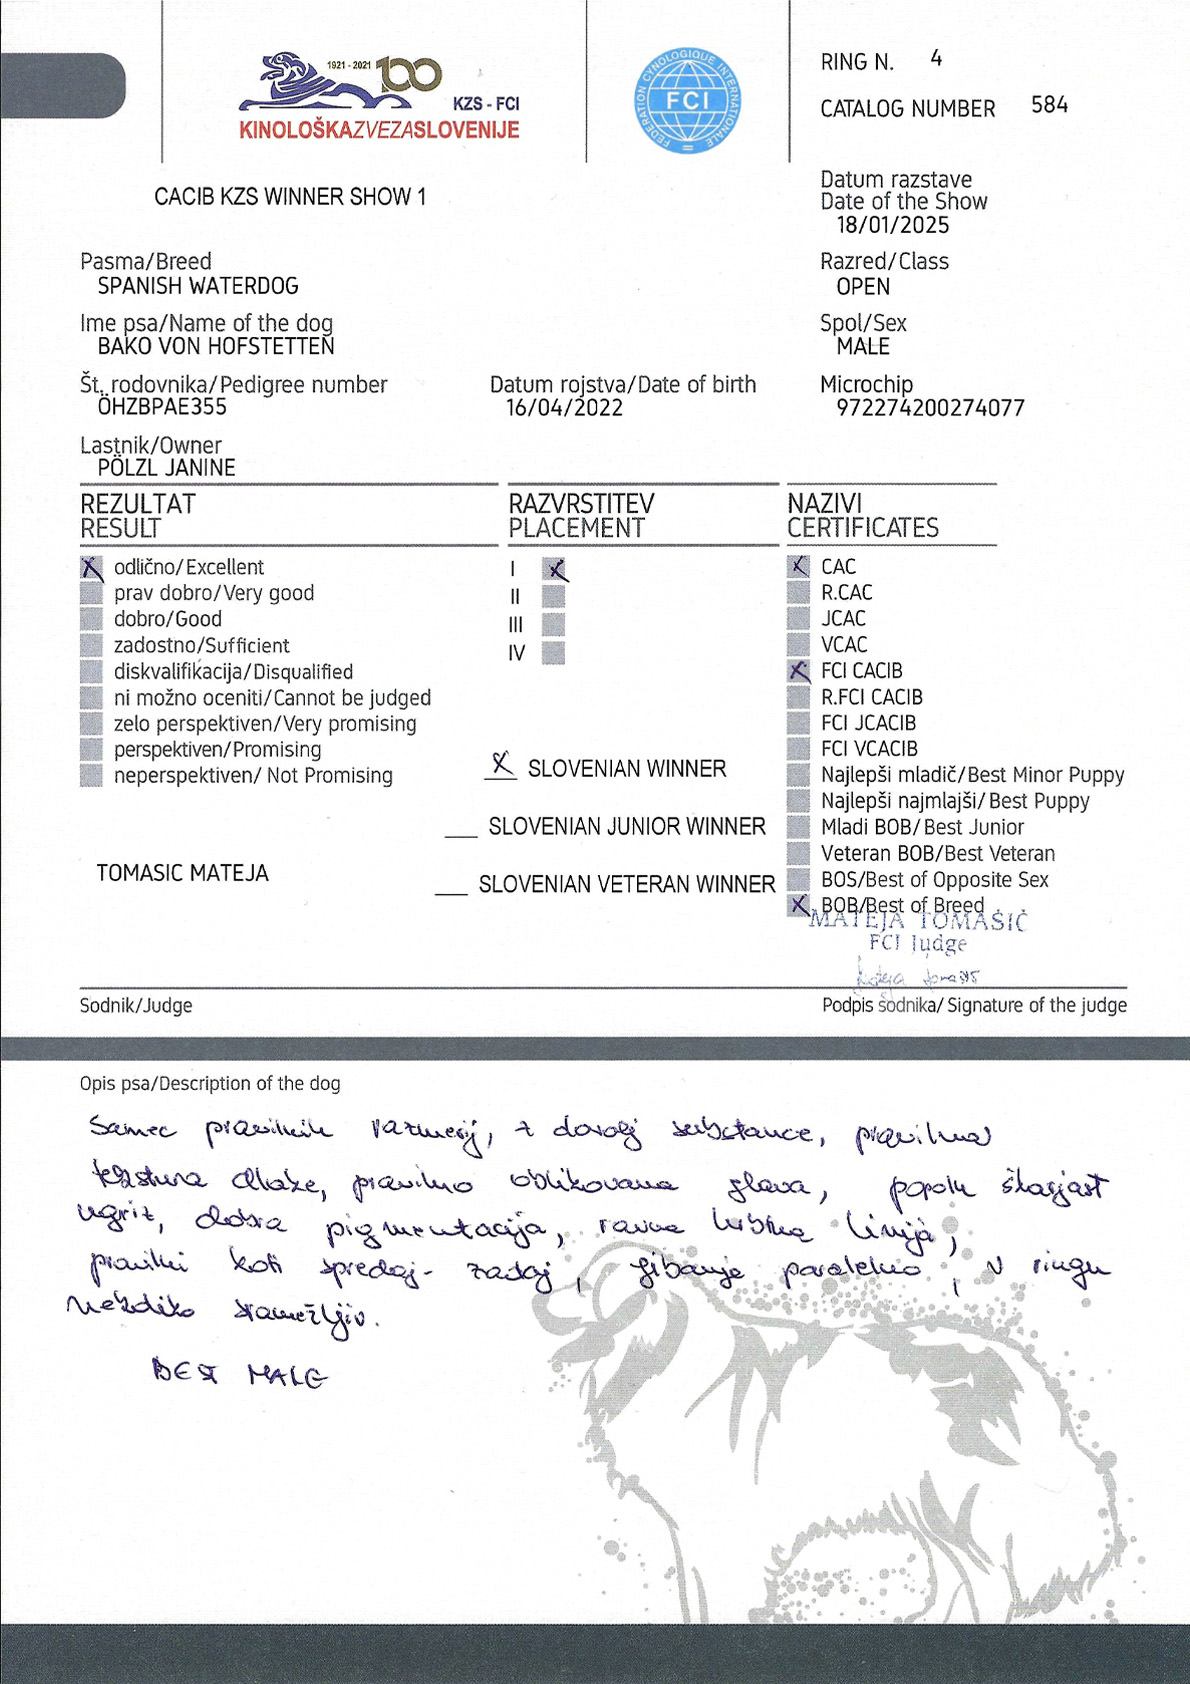 1921 - 2021 100
KZS - FCI
KINOLOŠKAZVEZASLOVENIJE
FEDERATION CYNOLOGIQUE INTERNATIONALE
FCI
RING N. 4
CATALOG NUMBER 584
CACIB KZS WINNER SHOW 1
Datum razstave
Date of the Show
18/01/2025
Pasma/Breed
SPANISH WATERDOG
Razred/Class
OPEN
Ime psa/Name of the dog
BAKO VON HOFSTETTEN
Spol/Sex
MALE
Št. rodovnika/Pedigree number
ÖHZBPAE355
Datum rojstva/Date of birth
16/04/2022
Microchip
972274200274077
Lastnik/Owner
PÖLZL JANINE
REZULTAT
RESULT
X odlično/Excellent
prav dobro/Very good
dobro/Good
zadostno/Sufficient
diskvalifikacija/Disqualified
ni možno oceniti/Cannot be judged
zelo perspektiven/Very promising
perspektiven/Promising
neperspektiven/ Not Promising
RAZVRSTITEV
PLACEMENT
I X
II
III
IV
X SLOVENIAN WINNER
___ SLOVENIAN JUNIOR WINNER
___ SLOVENIAN VETERAN WINNER
NAZIVI
CERTIFICATES
X CAC
R.CAC
JCAC
VCAC
X FCI CACIB
R.FCI CACIB
FCI JCACIB
FCI VCACIB
Najlepši mladič/Best Minor Puppy
Najlepši najmlajši/Best Puppy
Mladi BOB/Best Junior
Veteran BOB/Best Veteran
BOS/Best of Opposite Sex
X BOB/Best of Breed
TOMASIC MATEJA
MATEJA TOMAŠIČ
FCI Judge
Mateja Tomašič
Sodnik/Judge
Podpis sodnika/Signature of the judge
Opis psa/Description of the dog
Samec pravilnih razmerij, z dovolj substance, pravilna
tekstura dlake, pravilno oblikovana glava, popoln škarjast
ugriz, dobra pigmentacija, ravna hrbtna linija,
pravilni koti spredaj- zadaj, gibanje paralelno, v ringu
nekoliko sramežljiv.
BEST MALE